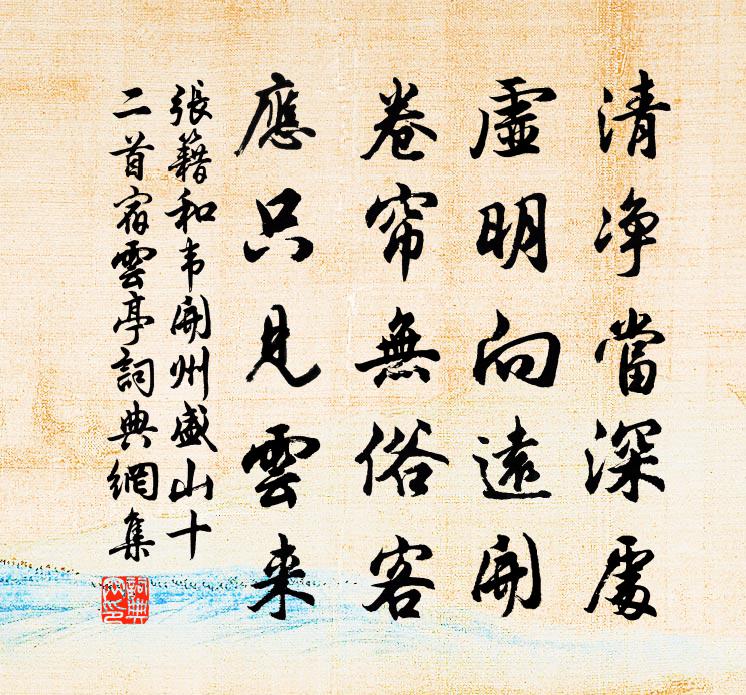 清净當深處
虛明向遠開
卷帘無俗客
應只見雲来
張籍和韦開州盛山十
二首宿雲亭詞典網集